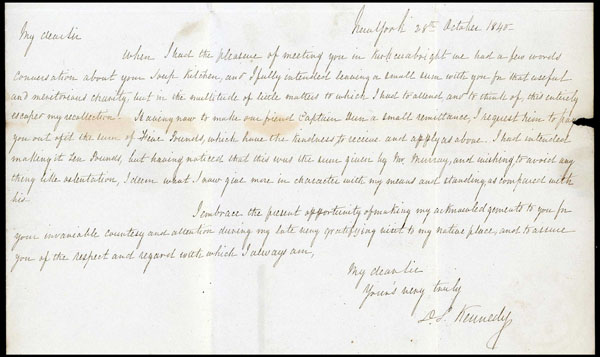 New York 28th October 1840-
My dear Sir
When I had the pleasure of meeting you in Kirkcudbright we had a few words
conversation about your Soup Kitchen, and I fully intended leaving a small sum with you for that useful
and meritorious charity, but in the multitude of little matters to which I had to attend and to think of, this entirely
escaped my recollection. Having now to make our friend Captain a small remittance, I request him to pay
you out of it the sum of Five Pounds, which have the kindness to receive and apply as above. I had intended
making it Ten Pounds, but having noticed that this was the sum given by Mr. Murray, and wishing to avoid any
thing like ostentation, I deem what I now give more in character with my means and standing as compared with
his-
I embrace the present opportunity of making my acknowledgements to you for
your invariable courtesy and attention during my late very gratifying visit to my native place, and to assure
you of the respect and regard with which I always am,
My dear Sir
Your's very truly
Kennedy